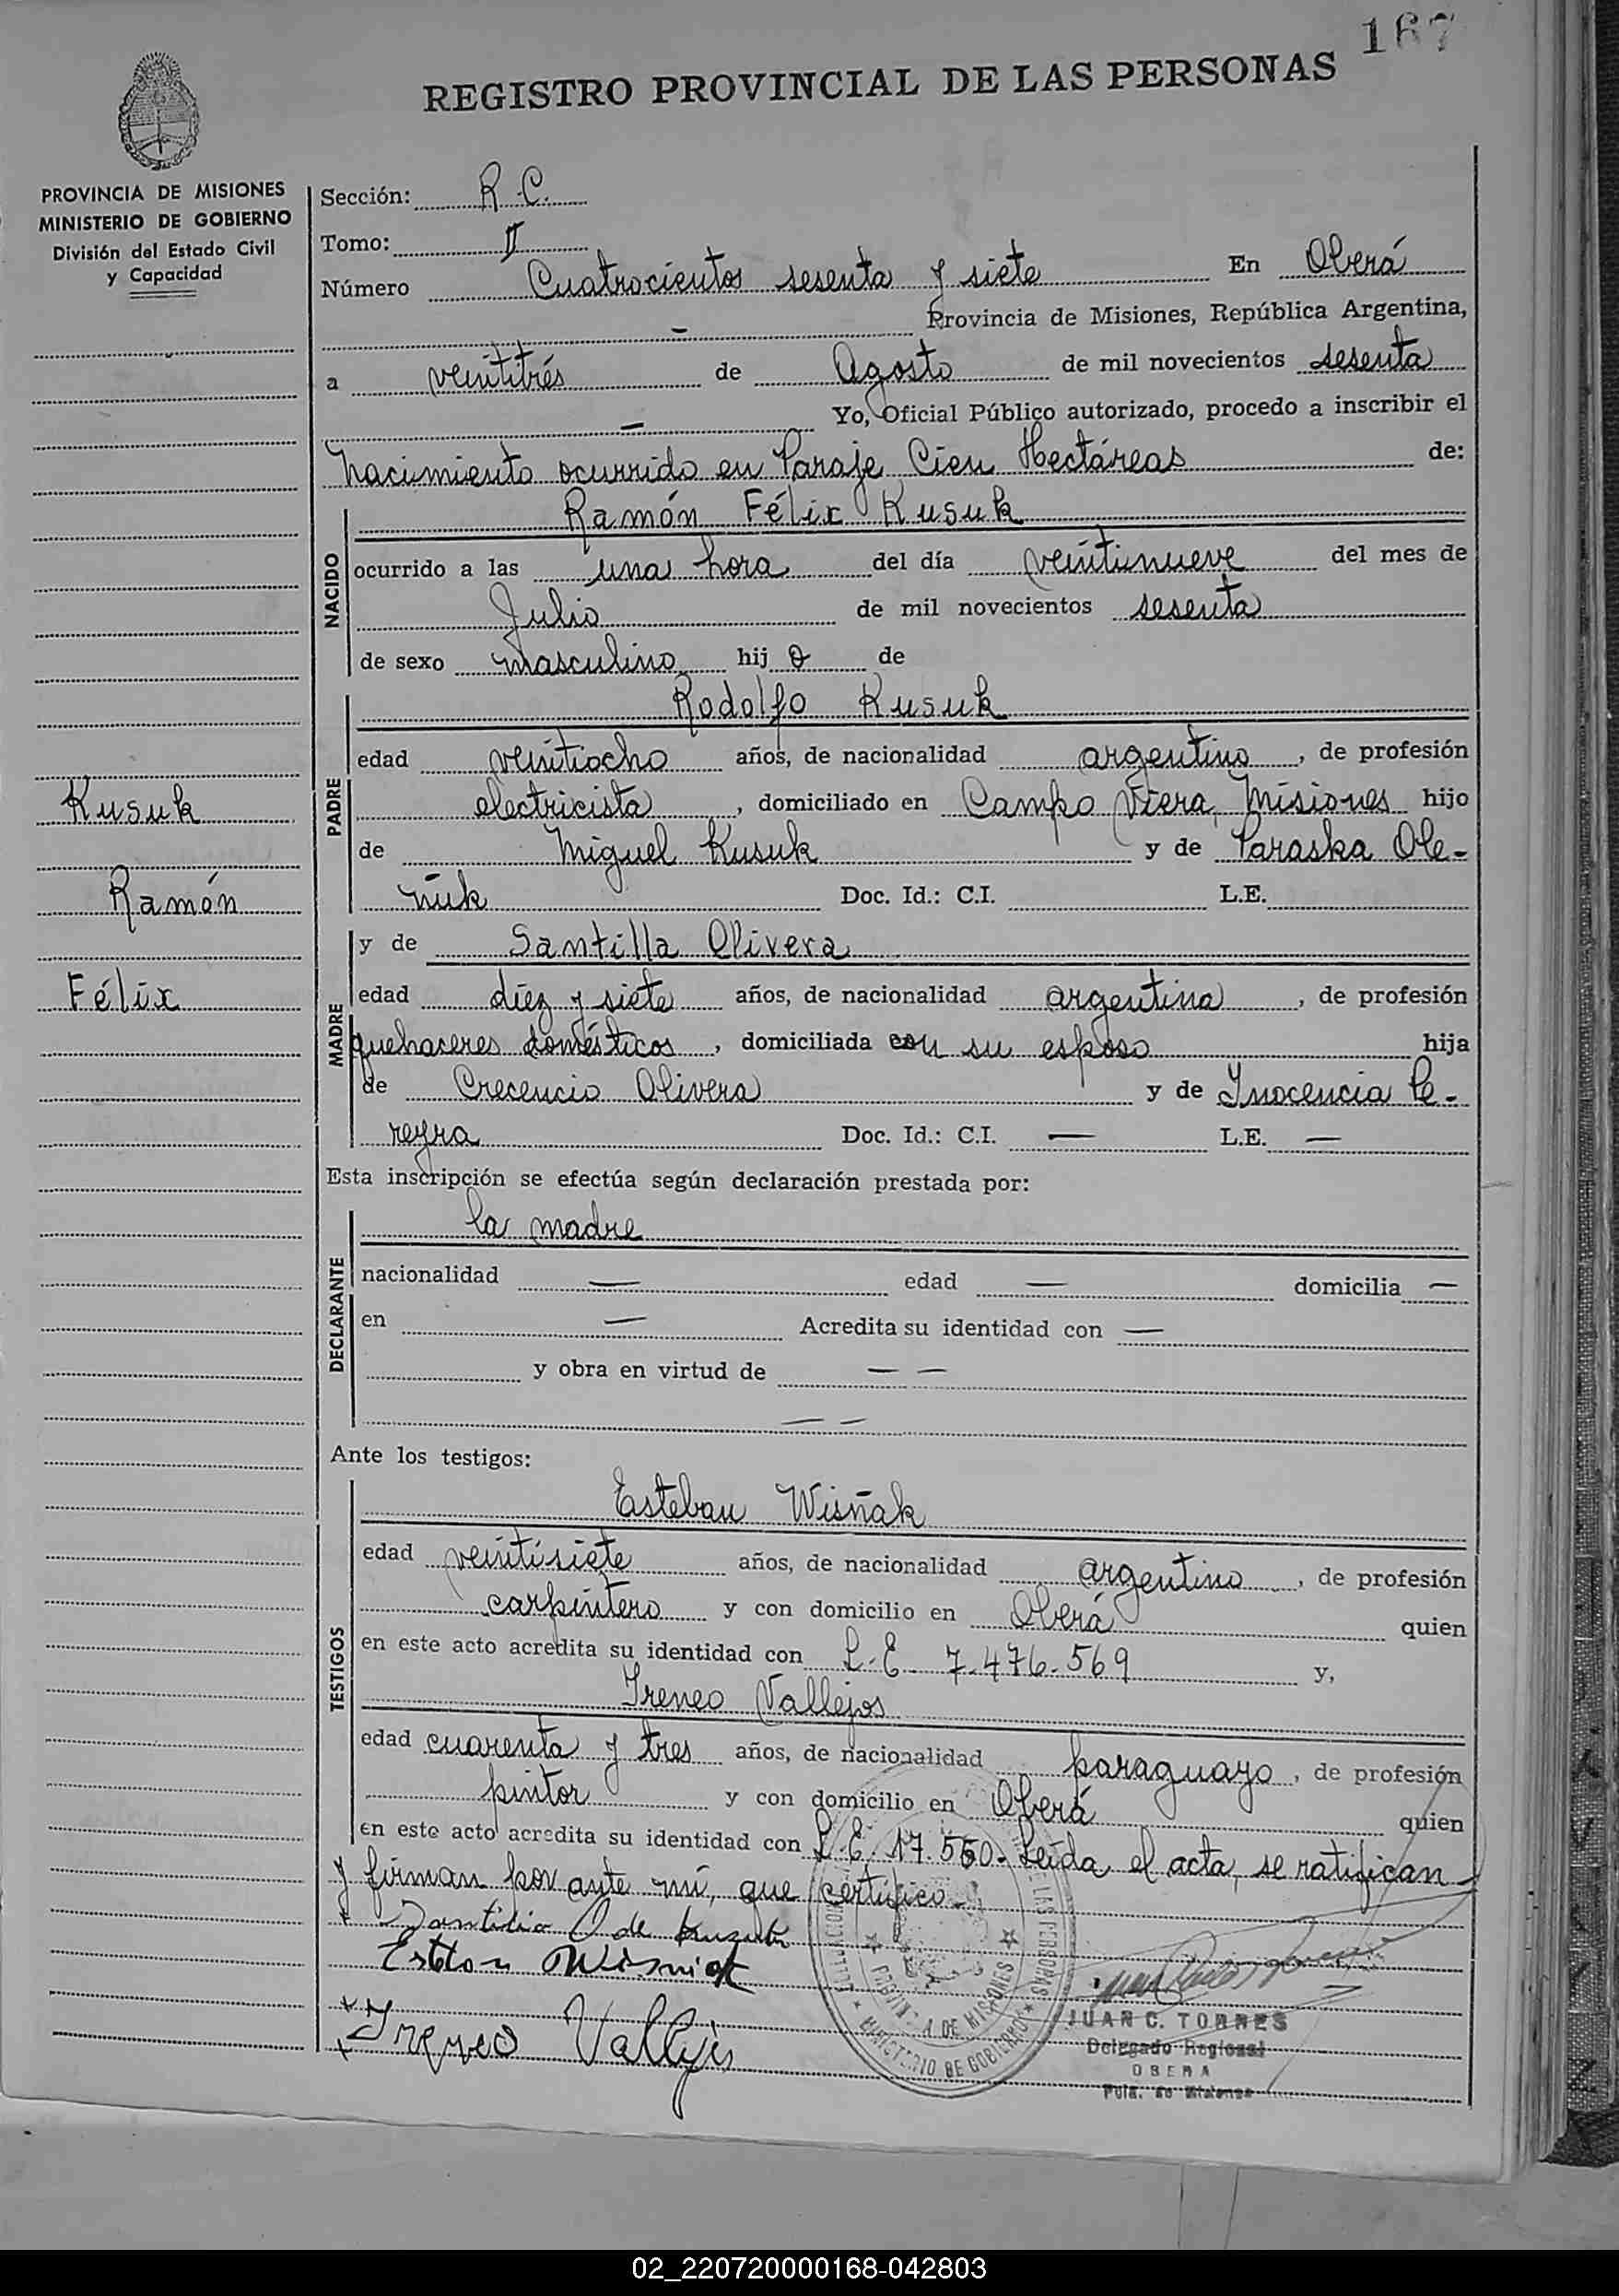 167
REGISTRO PROVINCIAL DE LAS PERSONAS
PROVINCIA DE MISIONES
MINISTERIO DE GOBIERNO
División del Estado Civil
y Capacidad
Sección: R.C.
Tomo: II
Número Cuatrocientos sesenta y siete En Oberá
Provincia de Misiones, República Argentina,
a veintitrés de Agosto de mil novecientos sesenta
Yo, Oficial Público autorizado, procedo a inscribir el
nacimiento ocurrido en Paraje Cien Hectáreas de:
NACIDO
Ramón Félix Kusuk
ocurrido a las una hora del día veintinueve del mes de
Julio de mil novecientos sesenta
de sexo masculino hij o de
PADRE
Rodolfo Kusuk
edad veintiocho años, de nacionalidad argentino, de profesión
electricista, domiciliado en Campo Viera, Misiones hijo
de Miguel Kusuk y de Paraska Ole-
ñuk Doc. Id.: C.I. L.E.
Kusuk
Ramón
Félix
MADRE
y de Santilla Olivera
edad diez y siete años, de nacionalidad argentina, de profesión
quehaceres domésticos, domiciliada con su esposo hija
de Crecencio Olivera y de Inocencia Pe-
reyra Doc. Id.: C.I. — L.E. —
Esta inscripción se efectúa según declaración prestada por:
DECLARANTE
la madre
nacionalidad — edad — domicilia —
en — Acredita su identidad con —
y obra en virtud de — —
— —
Ante los testigos:
TESTIGOS
Esteban Wisñak
edad veintisiete años, de nacionalidad argentino, de profesión
carpintero y con domicilio en Oberá quien
en este acto acredita su identidad con L.E. 7.476.569 y,
Ireneo Vallejos
edad cuarenta y tres años, de nacionalidad paraguayo, de profesión
pintor y con domicilio en Oberá quien
en este acto acredita su identidad con L.E. 17.550.- Leída el acta, se ratifican
y firman por ante mí, que certifico.-
O de
Ireneo Vallejos
PROVINCIA DE MISIONES
MINISTERIO DE GOBIERNO
LAS PERSONAS
JUAN C. TORRES
Delegado Regional
OBERA
Pcia. de Misiones
02_220720000168-042803